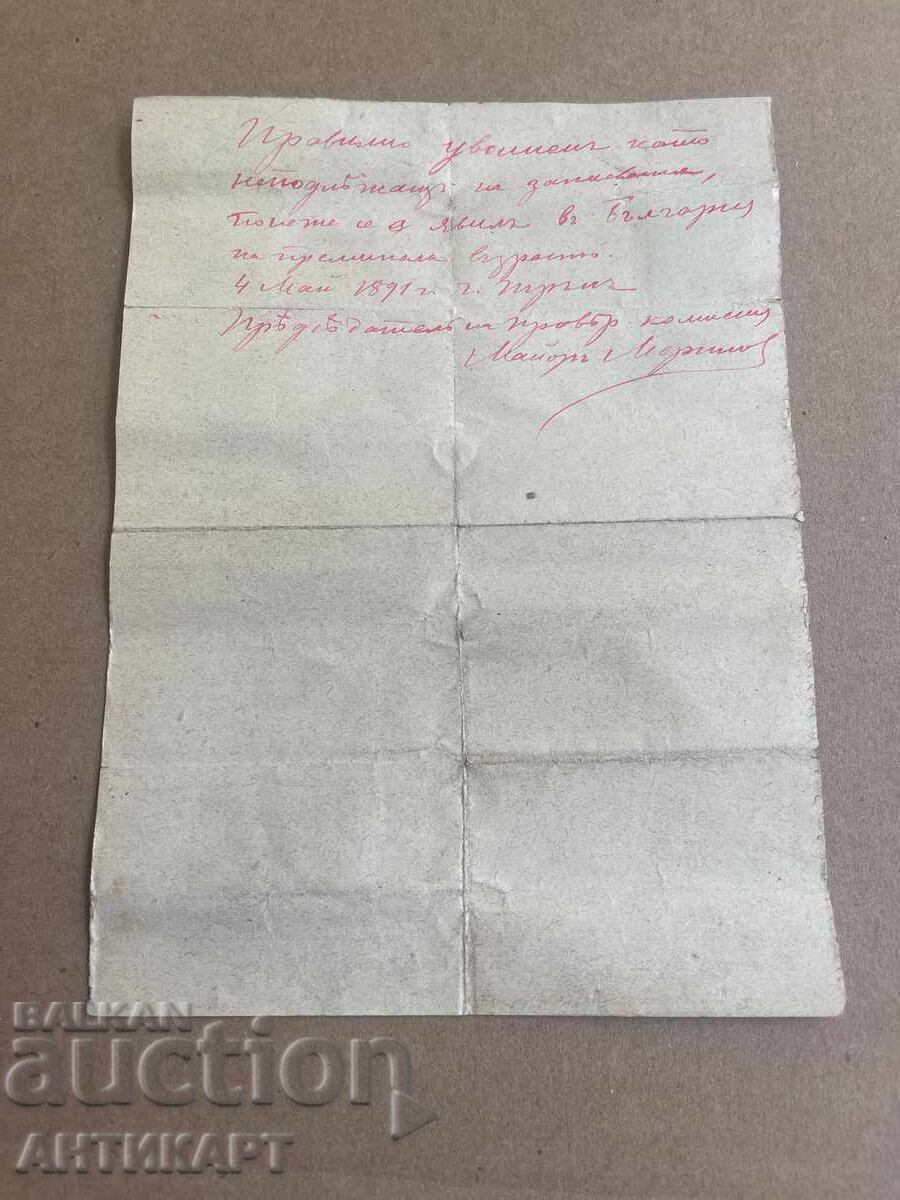 Правилно уволненъ като
неподлѣжащъ на записвание,
понеже се е явилъ в Бѫлгария
на преминала възрастъ.
4 Май 1891 г. г. Трънъ
Прѣдсѣдателъ на провѣр. комисия
Майоръ
BALKAN
auction
АНТИКАРТ